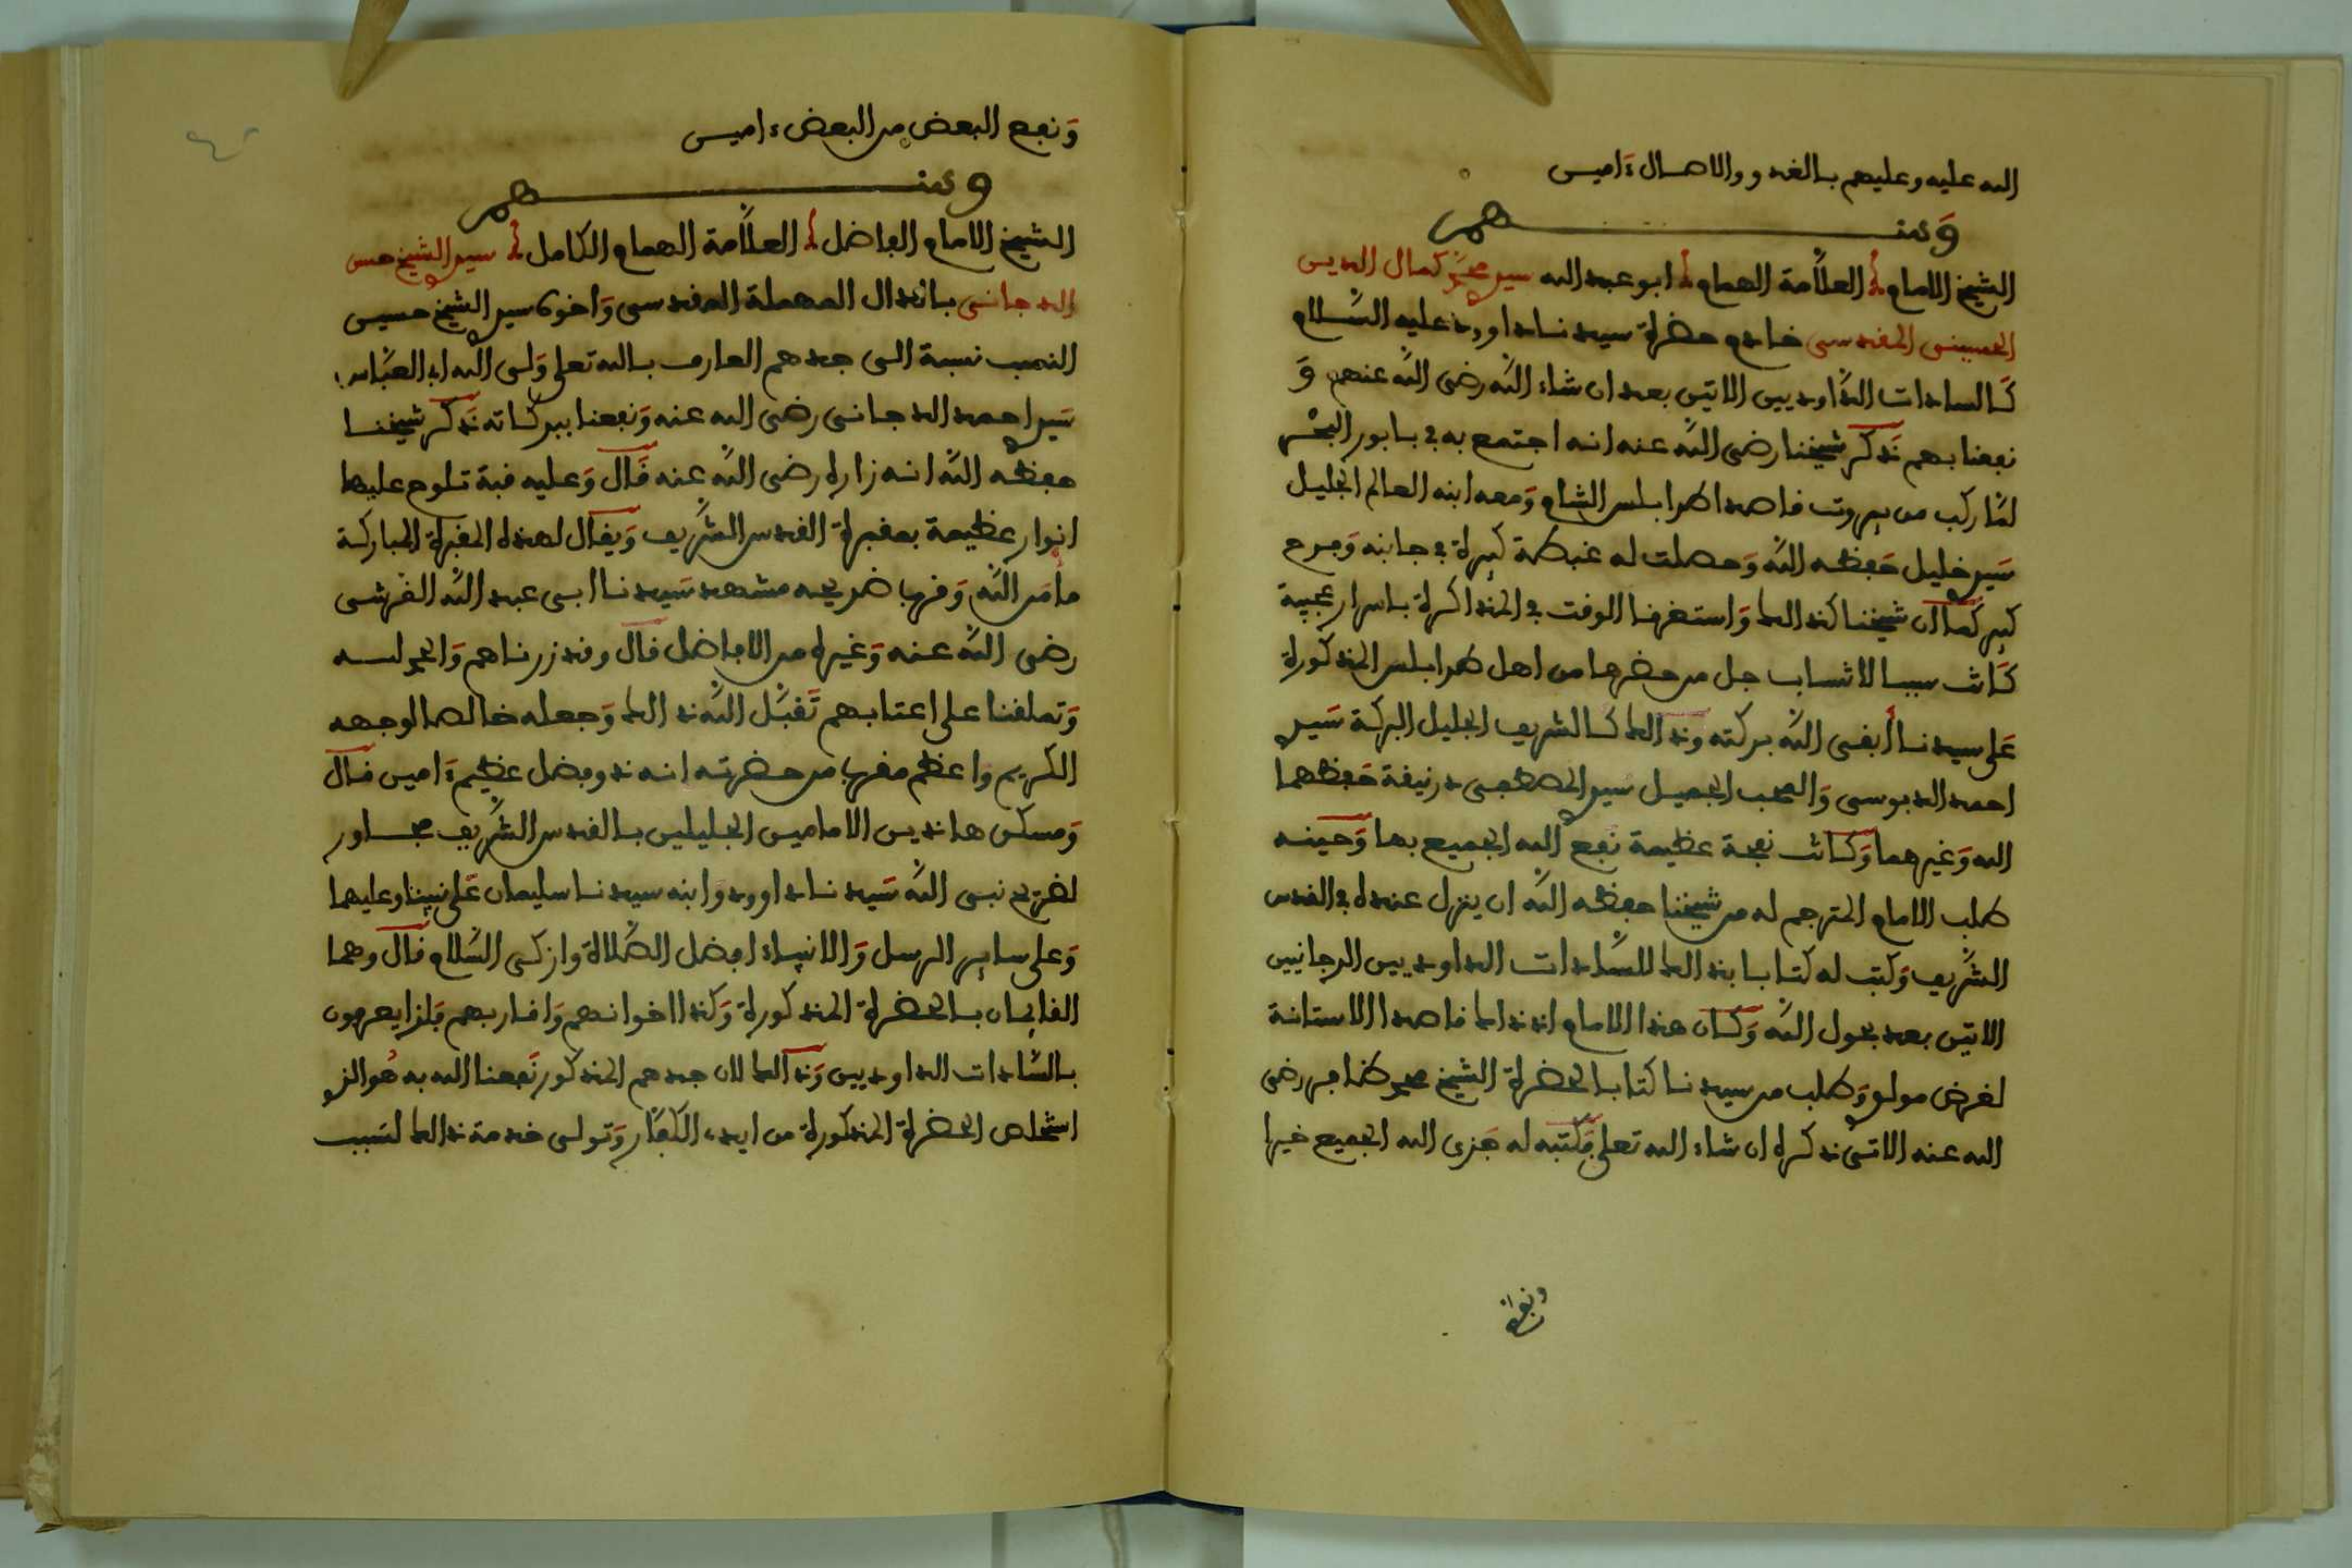 الله عليه وعليهم بالغدو والاصال ءامين
ومنهم
الشيخ الامام العلامة الهمام ابو عبد الله سيدي محمد كمال الدين
الحسيني المقدسي خادم حضرة سيدنا داوود عليه السلام
كالسادات الداوديين الاتين بعد ان شاء الله رضي الله عنهم و
نفعنا بهم ذكر شيخنا رضي الله عنه انه اجتمع به في بابور البحر
لما ركب من بيروت قاصدا طرابلس الشام ومعه ابنه العالم الجليل
سيدي خليل حفظه الله وحصلت له غبطة كبيرة في جانبه وفرح
كبير كما ان شيخنا كذالك واستغرقا الوقت في المذاكرة باسرار عجيبة
كانت سببا لانتساب جل من حضرها من اهل طرابلس المذكورة
على سيدنا أبقى الله بركته وذالك كالشريف الجليل البركة سيدي
احمد الدبوسي والمحب الجميل سيدي المصطفى درنيقة حفظهما
الله وغيرهما وكانت نفحة عظيمة نفع الله الجميع بها وحينه
طلب الامام المترجم له من شيخنا حفظه الله ان ينزل عنده في القدس
الشريف وكتب له كتابا بذالك للسادات الداوديين الدجانيين
الاتين بعد بحول الله وكان هذا الامام اذ ذاك قاصدا الاستانة
لغرض مولو وطلب من سيدنا كتابا لحضرة الشيخ محمد ظافر رضي
الله عنه الاتي ذكره ان شاء الله تعلى فكتبه له جزى الله الجميع خيرا
ونفع
ونفع البعض من البعض ءامين
ومنهم
الشيخ الامام الفاضل العلامة الهمام الكامل سيدي الشيخ حسن
الدجاني بالدال المهملة المقدسي واخوه سيدي الشيخ حسين
النمب نسبة الى جدهم العارف بالله تعلى ولي الله ابي العباس
سيدي احمد الدجاني رضي الله عنه ونفعنا ببركاته ذكر شيخنا
حفظه الله انه زاره رضي الله عنه قال وعليه قبة تلوح عليها
انوار عظيمة بمقبرة القدس الشريف ويقال لهذه المقبرة المباركة
مامن الله وقريبا ضريحه مشهد سيدنا ابي عبد الله القرشي
رضي الله عنه وغيره من الافاضل قال وقد زرناهم والحمد لله
وتملقنا على اعتابهم تقبل الله ذالك وجعله خالصا لوجهه
الكريم واعظم مقربا من حضرته انه ذو فضل عظيم ءامين قال
ومسكن هاذين الامامين الجليلين بالقدس الشريف مجاور
لضريح نبي الله سيدنا داوود وابنه سيدنا سليمان على نبينا وعليهما
وعلى ساير الرسل والانبياء افضل الصلاة وازكى السلام قال وهما
القائمان بالحضرة المذكورة وكذا اخوانهم واقاربهم فلذا يعرفون
بالسادات الداوديين وذالك لان جدهم المذكور نفعنا الله به هو الذي
استخلص الحضرة المذكورة من ايدي الكفار وتولى خدمة ذالك لسبب